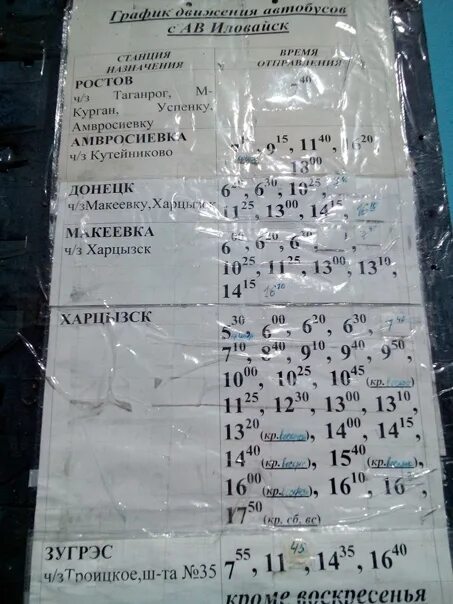 График движения автобусов
с АВ Иловайск
СТАНЦИЯ НАЗНАЧЕНИЯ
ВРЕМЯ ОТПРАВЛЕНИЯ
РОСТОВ
ч/з Таганрог, М-
Курган, Успенку,
Амвросиевку
7⁴⁰
АМВРОСИЕВКА
ч/з Кутейниково
9¹⁵, 11⁴⁰, 16²⁰
13⁰⁰
ДОНЕЦК
ч/зМакеевку,Харцызск
6³⁰, 10²⁵
11²⁵, 13⁰⁰, 14¹⁵,
МАКЕЕВКА
ч/з Харцызск
6²⁰
10²⁵, 11²⁵, 13⁰⁰, 13¹⁰,
14¹⁵
ХАРЦЫЗСК
5³⁰, 6⁰⁰, 6²⁰, 6³⁰, 7⁴⁰
7¹⁰, 8⁴⁰, 9¹⁰, 9⁴⁰, 9⁵⁰,
10⁰⁰, 10²⁵, 10⁴⁵ (кр.
11²⁵, 12³⁰, 13⁰⁰, 13¹⁰,
13²⁰ (кр. ), 14⁰⁰, 14¹⁵,
14⁴⁰ (кр. ), 15⁴⁰ (кр. ),
16⁰⁰ (кр. ), 16¹⁰, 16
17⁵⁰ (кр. сб, вс)
ЗУГРЭС
ч/зТроицкое,ш-та №35
7⁵⁵, 11⁴⁵, 14³⁵, 16⁴⁰
кроме воскресенья